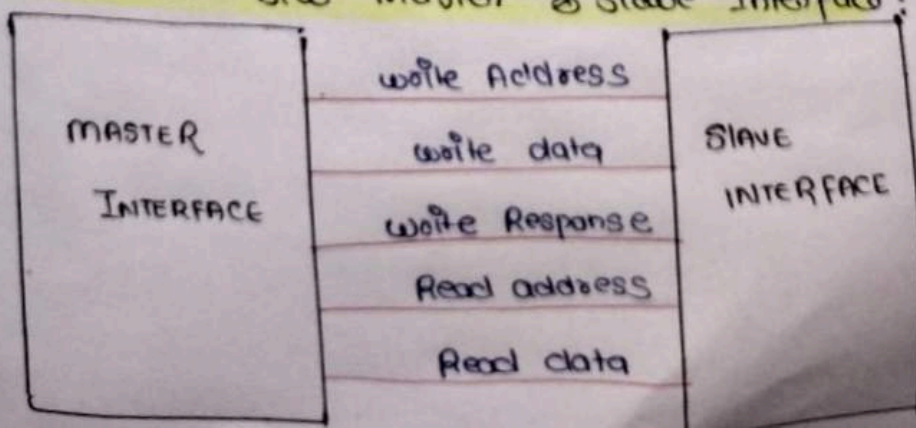 Master & Slave Interface:
MASTER
INTERFACE
write Address
write data
write Response
Read address
Read data
SlAVE
INTERFACE